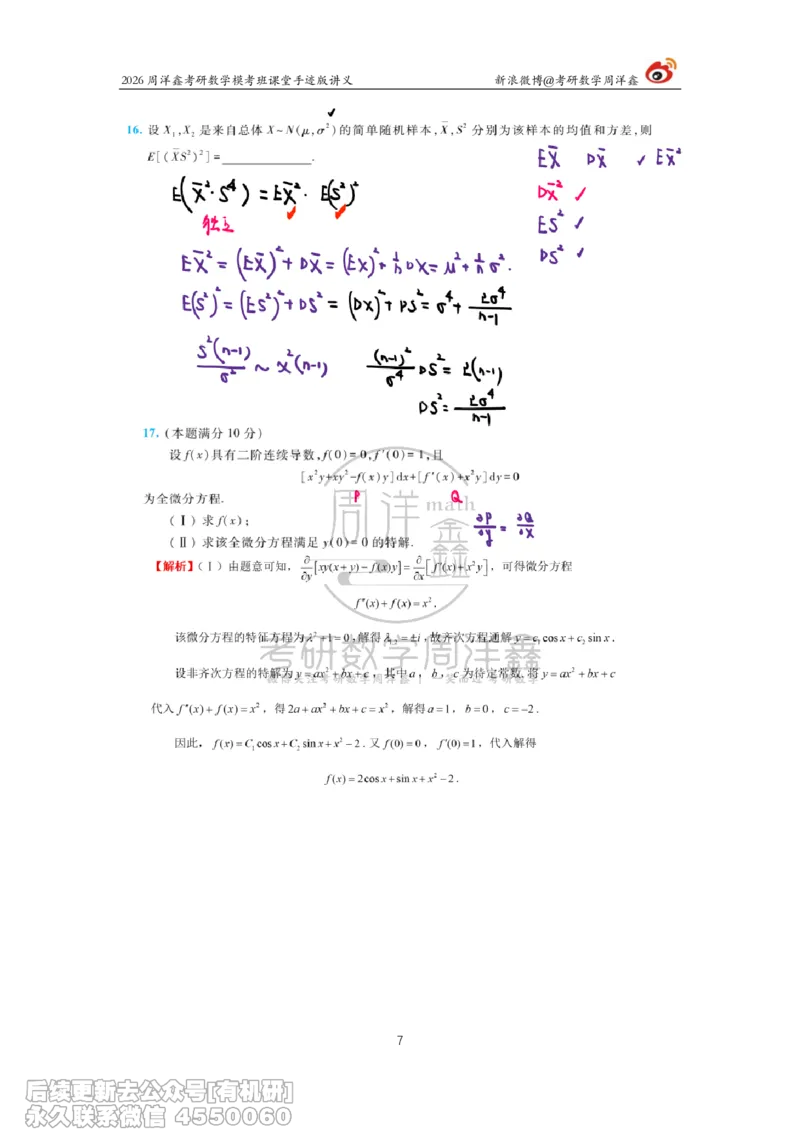 2026 周洋鑫考研数学模考班课堂手迹版讲义 新浪微博@考研数学周洋鑫
16. 设 X₁,X₂ 是来自总体 X~N(μ,σ²)的简单随机样本,X̄,S² 分别为该样本的均值和方差,则
E[(X̄S²)²]=____________.
EX̄ DX̄ ✓ EX̄²
E(X̄²·S⁴) = EX̄²· E(S²)²
DX̄² ✓
独立
ES² ✓
DS² ✓
EX̄² = (EX̄)²+DX̄ = (EX)²+1/n DX = μ²+1/n σ².
E(S²)² = (ES²)²+DS² = (DX)²+DS² = σ⁴+ 2σ⁴/(n-1)
S²(n-1)/σ² ~ χ²(n-1)
(n-1)²/σ⁴ DS² = 2(n-1)
DS² = 2σ⁴/(n-1)
17. (本题满分 10 分)
设 f(x)具有二阶连续导数,f(0)=0,f′(0)=1,且
[x²y+xy²-f(x)y]dx+[f′(x)+x²y]dy=0
P Q
为全微分方程.
(Ⅰ) 求 f(x);
∂P/∂y = ∂Q/∂x
(Ⅱ) 求该全微分方程满足 y(0)=0 的特解.
【解析】(Ⅰ)由题意可知, ∂/∂y [xy(x+y)-f(x)y] = ∂/∂x [f′(x)+x²y], 可得微分方程
f″(x)+f(x)=x².
该微分方程的特征方程为λ²+1=0,解得λ₁,₂=±i,故齐次方程通解 y=c₁cosx+c₂sinx.
设非齐次方程的特解为y=ax²+bx+c,其中a, b, c为待定常数.将 y=ax²+bx+c
代入 f″(x)+f(x)=x²,得2a+ax²+bx+c=x²,解得a=1, b=0, c=-2.
因此, f(x)=C₁cosx+C₂sinx+x²-2. 又 f(0)=0, f′(0)=1,代入解得
f(x)=2cosx+sinx+x²-2.
周洋鑫
math
考研数学周洋鑫
7
后续更新去公众号[有机研]
永久联系微信 4550060